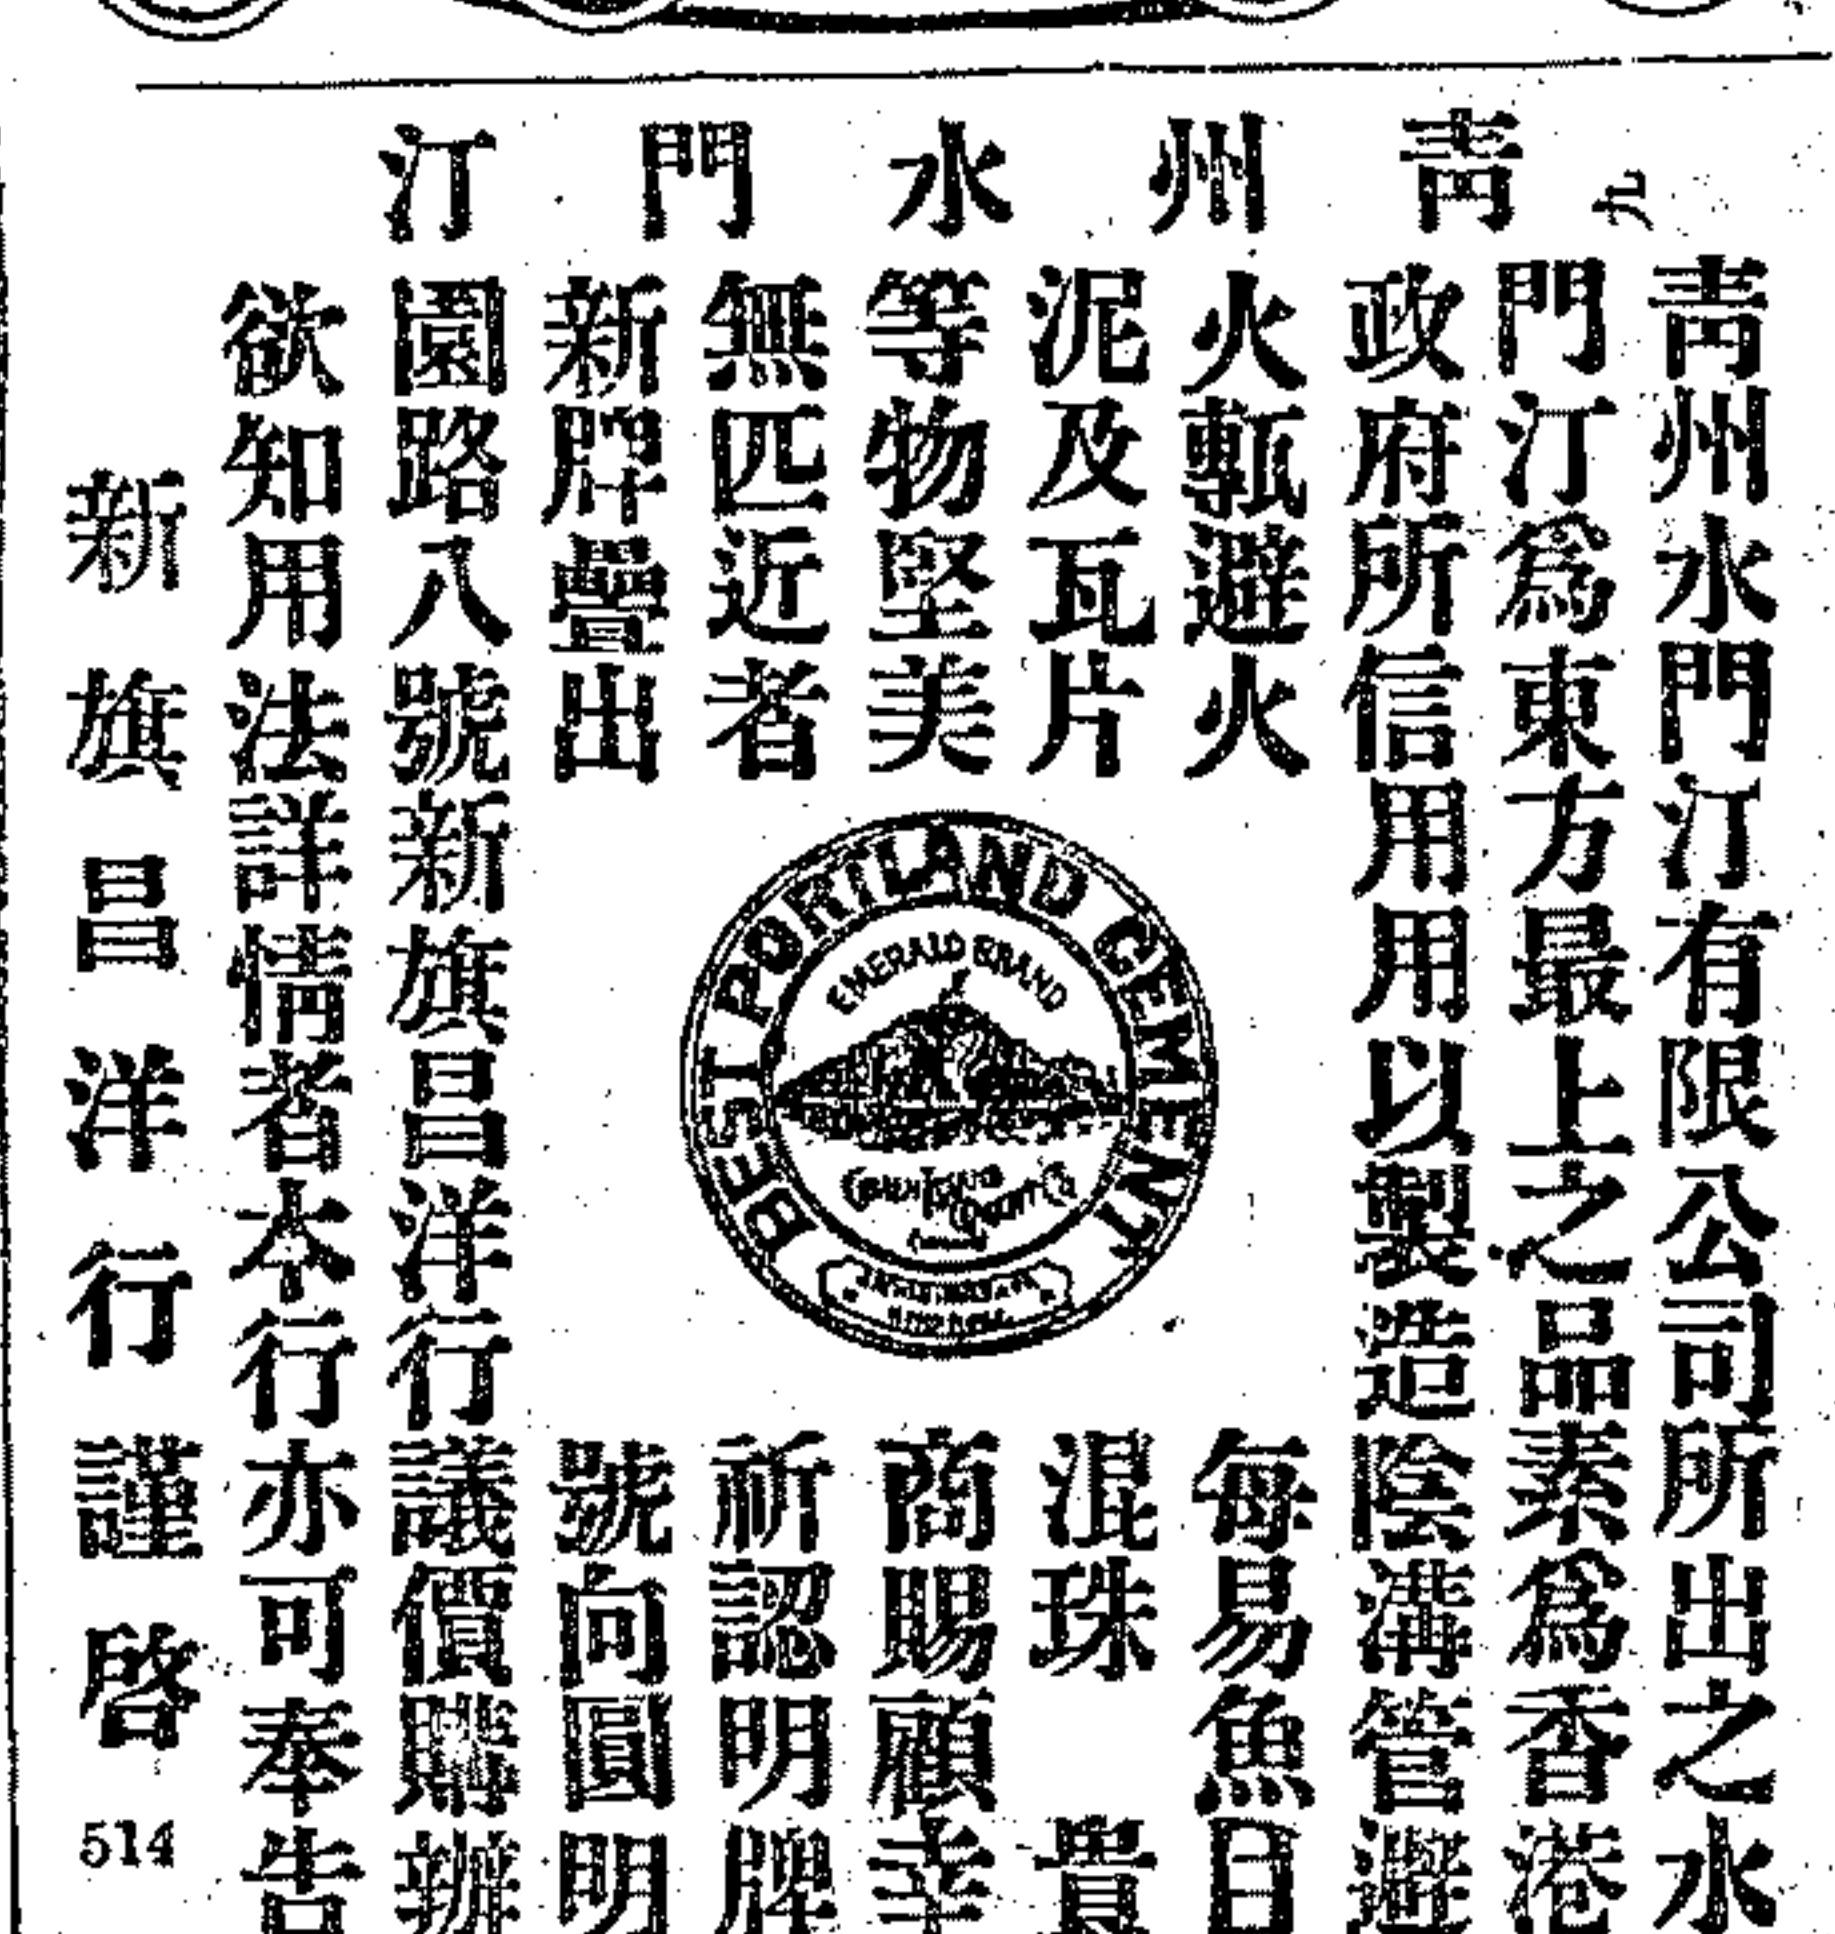 青州水門汀
九
青州水門汀有限公司所出之水
門汀爲東方最上之品素爲香港
政府所信用用以製造陰溝管避
火甎避火
每易魚目
泥及瓦片
混珠 貴
等物堅美
商賜顧幸
無匹近者
祈認明牌
新牌疊出
號向圓明
園路八號新旗昌洋行議價購辦
欲知用法詳情者本行亦可奉告
新旗昌洋行謹啓
514
BEST PORTLAND CEMENT
EMERALD BRAND